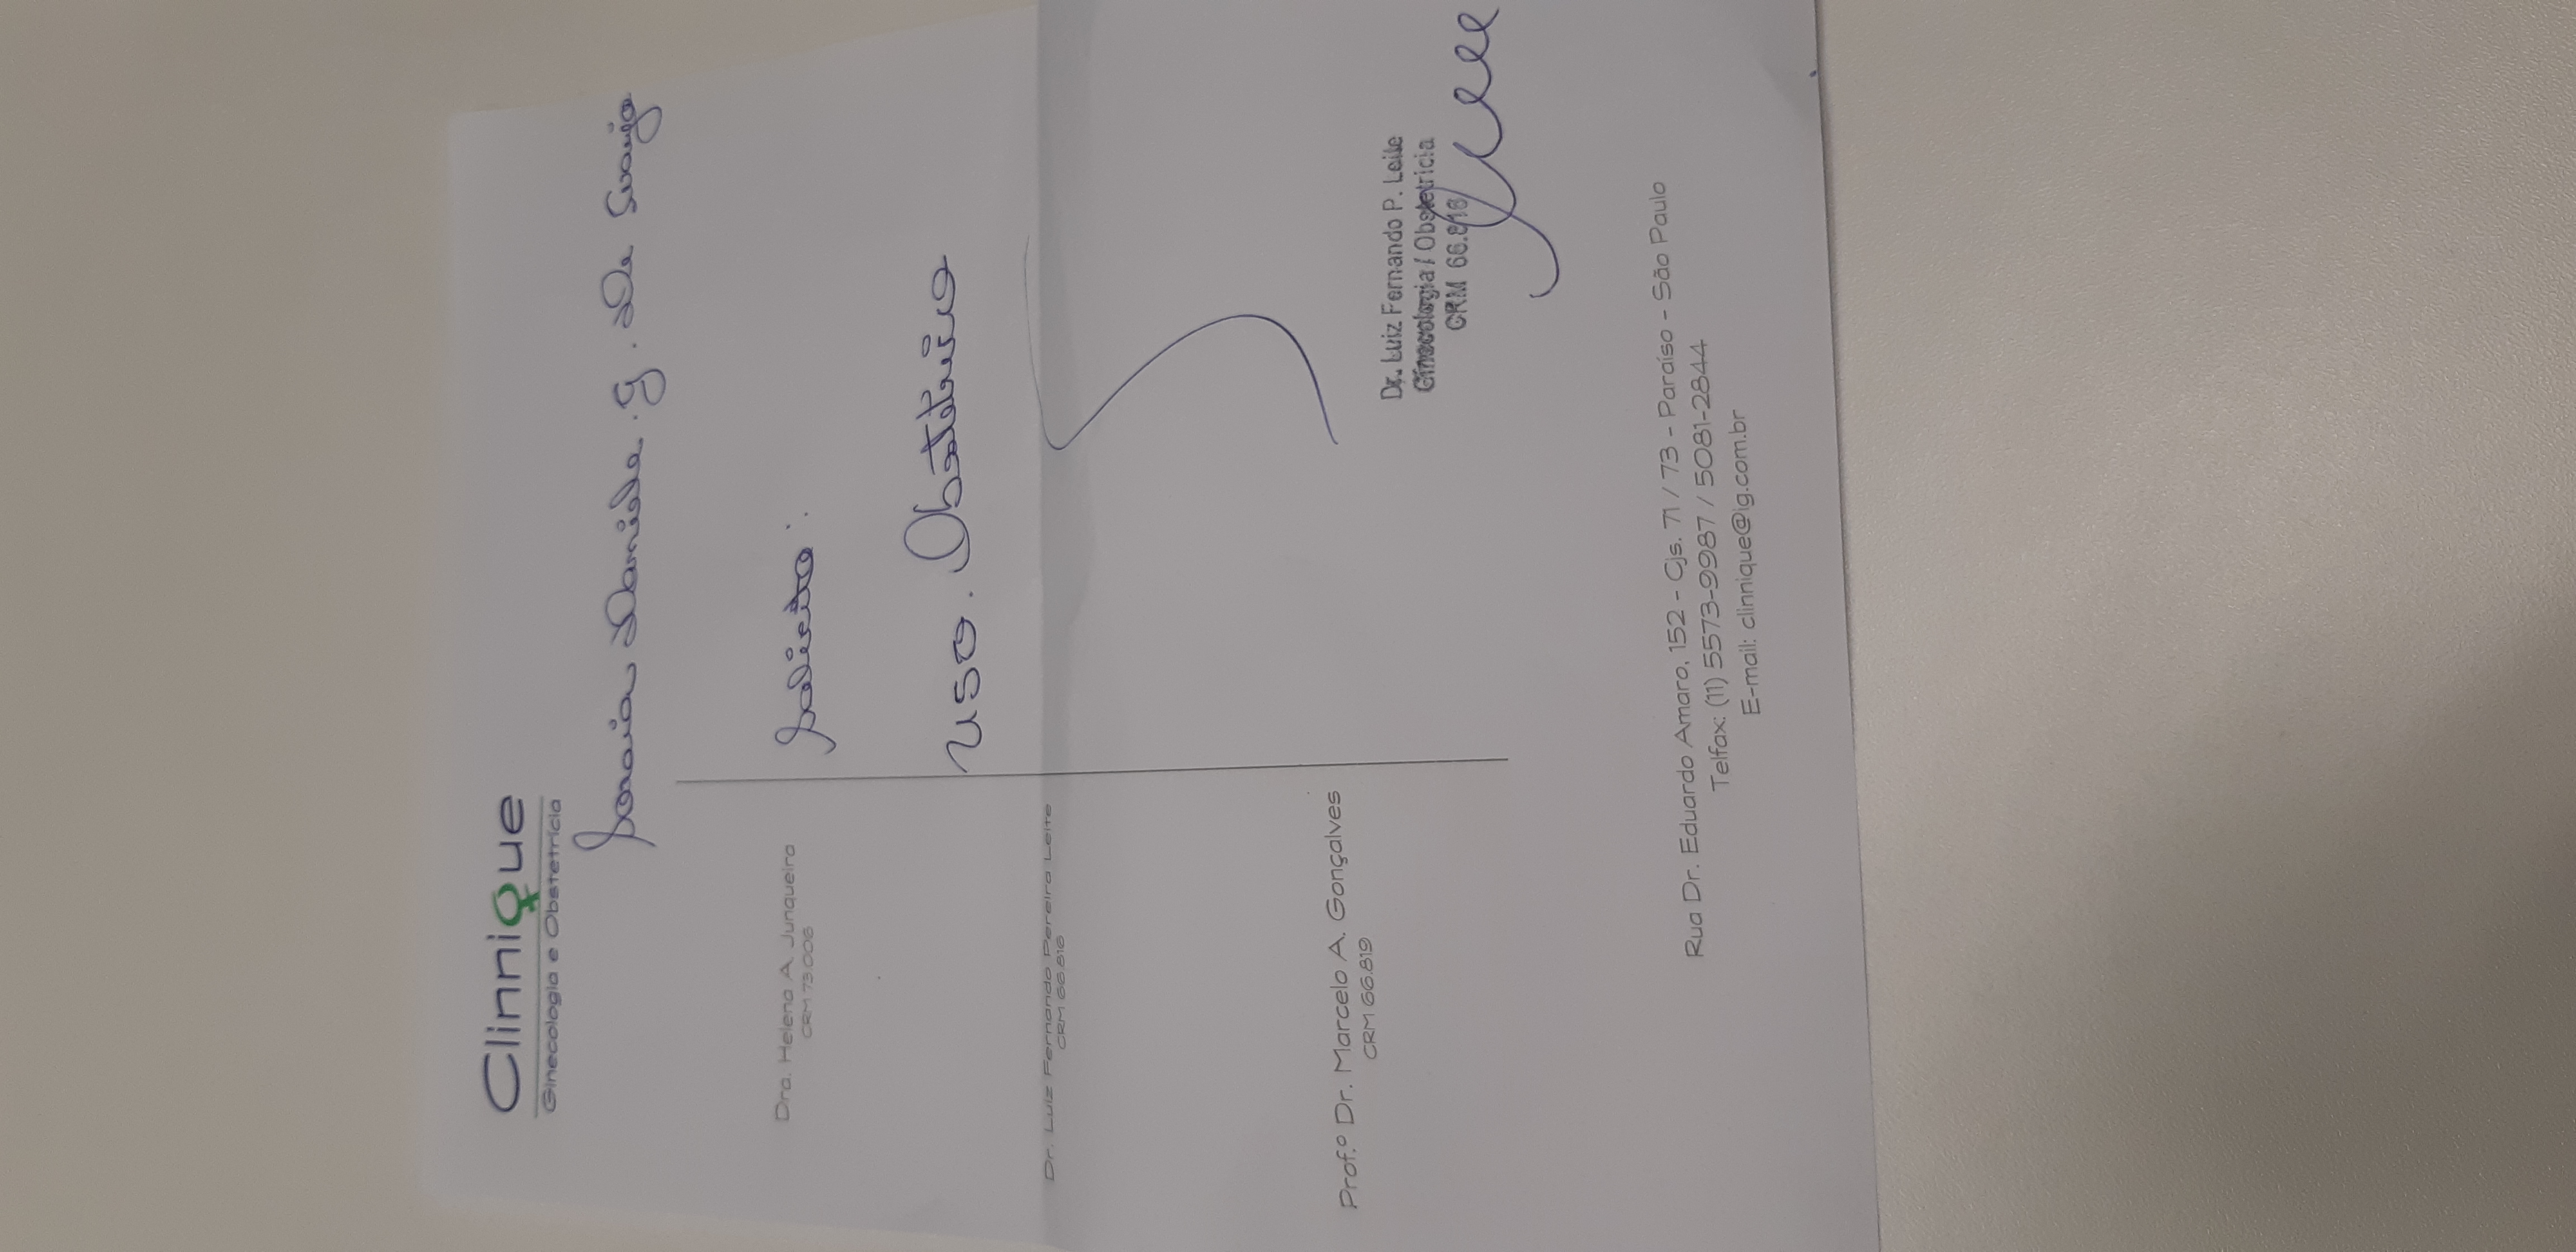 Clinnique
Ginecologia e Obstetrícia
Soraia Daniele . G . De Araujo
Dra. Helena A. Junqueira
CRM 73.006
Solicito :
USO . Obstetrico
Dr. Luiz Fernando Pereira Leite
CRM 66.816
Prof.º Dr. Marcelo A. Gonçalves
CRM 66.819
Dr. Luiz Fernando P. Leite
Ginecologia / Obstetricia
CRM 66.816
Rua Dr. Eduardo Amaro, 152 - Cjs. 71 / 73 - Paraíso - São Paulo
Telfax: (11) 5573-9987 / 5081-2844
E-mail: clinnique@ig.com.br